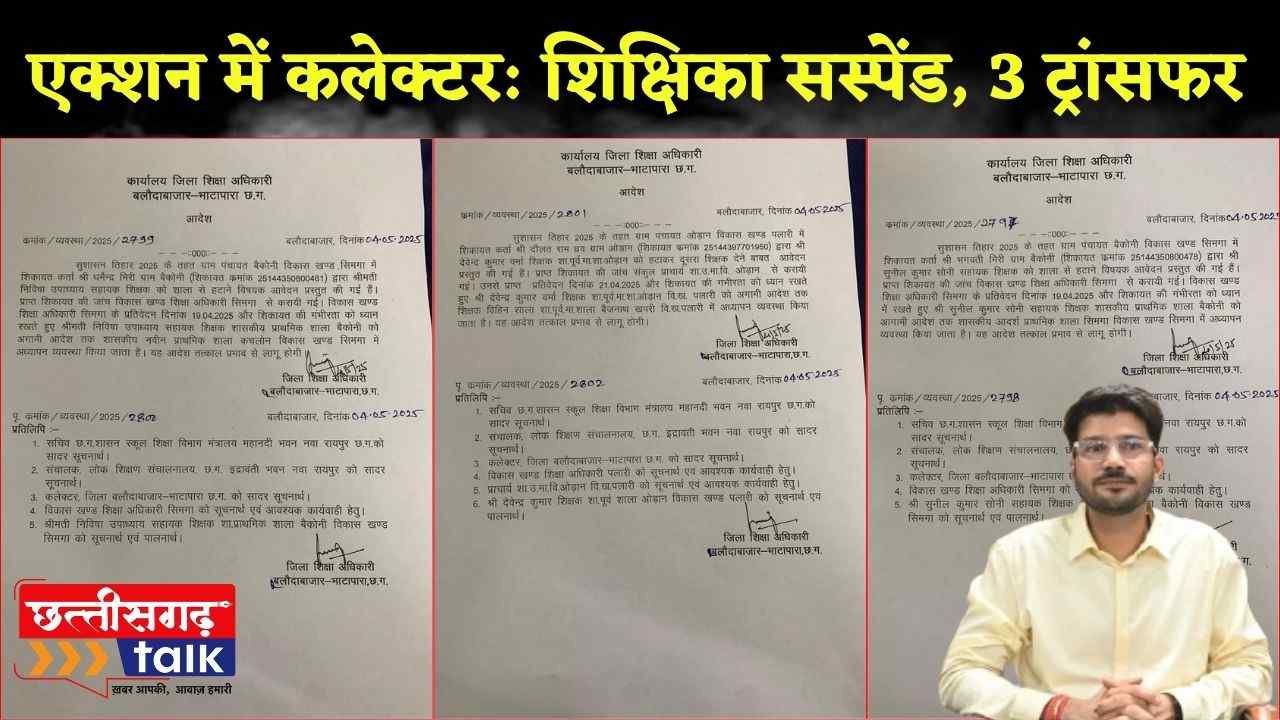 एक्शन में कलेक्टर: शिक्षिका सस्पेंड, 3 ट्रांसफर
कार्यालय जिला शिक्षा अधिकारी
बलौदाबाजार–भाटापारा छ.ग.
आदेश
क्रमांक/व्यवस्था/2025/2799 बलौदाबाजार, दिनांक 04.05.2025
---:000:---
सुशासन तिहार 2025 के तहत ग्राम पंचायत बैकोनी विकास खण्ड सिमगा में
शिकायत कर्ता श्री धर्मेन्द्र गिरी ग्राम बैकोनी (शिकायत क्रमांक 25144350800481) द्वारा श्रीमती
निविषा उपाध्याय सहायक शिक्षक को शाला से हटाने विषयक आवेदन प्रस्तुत की गई हैं।
प्राप्त शिकायत की जांच विकास खण्ड शिक्षा अधिकारी सिमगा से करायी गई। विकास खण्ड
शिक्षा अधिकारी सिमगा के प्रतिवेदन दिनांक 19.04.2025 और शिकायत की गंभीरता को ध्यान
रखते हुए श्रीमती निविषा उपाध्याय सहायक शिक्षक शासकीय प्राथमिक शाला बैकोनी को
अगामी आदेश तक शासकीय नवीन प्राथमिक शाला कचलोन विकास खण्ड सिमगा में
अध्यापन व्यवस्था किया जाता है। यह आदेश तत्काल प्रभाव से लागू होगी।
जिला शिक्षा अधिकारी
बलौदाबाजार–भाटापारा,छ.ग.
पृ. क्रमांक/व्यवस्था/2025/2800 बलौदाबाजार, दिनांक 04.05.2025
प्रतिलिपि :–
1. सचिव छ.ग.शासन स्कूल शिक्षा विभाग मंत्रालय महानदी भवन नवा रायपुर छ.ग.को
सादर सूचनार्थ।
2. संचालक, लोक शिक्षण संचालनालय, छ.ग. इद्रावती भवन नवा रायपुर को सादर
सूचनार्थ।
3. कलेक्टर, जिला बलौदाबाजार–भाटापारा छ.ग. को सादर सूचनार्थ।
4. विकास खण्ड शिक्षा अधिकारी सिमगा को सूचनार्थ एवं आवश्यक कार्यवाही हेतु।
5. श्रीमती निविषा उपाध्याय सहायक शिक्षक शा.प्राथमिक शाला बैकोनी विकास खण्ड
सिमगा को सूचनार्थ एवं पालनार्थ।
जिला शिक्षा अधिकारी
बलौदाबाजार–भाटापारा,छ.ग.
कार्यालय जिला शिक्षा अधिकारी
बलौदाबाजार–भाटापारा छ.ग.
आदेश
क्रमांक/व्यवस्था/2025/2801 बलौदाबाजार, दिनांक 04.05.2025
---:000:---
सुशासन तिहार 2025 के तहत ग्राम पंचायत ओड़ान विकास खण्ड पलारी में
शिकायत कर्ता श्री दौलत राम ग्राम ओड़ान (शिकायत क्रमांक 25144397701950) द्वारा श्री
देवेन्द्र कुमार वर्मा शिक्षक शा.पूर्व.मा.शा.ओड़ान को हटाकर दूसरा शिक्षक देने बाबत आवेदन
प्रस्तुत की गई हैं। प्राप्त शिकायत की जांच संकुल प्राचार्य शा.उ.मा.वि. ओड़ान से करायी
गई। उनसे प्राप्त प्रतिवेदन दिनांक 21.04.2025 और शिकायत की गंभीरता को ध्यान रखते
हुए श्री देवेन्द्र कुमार वर्मा शिक्षक शा.पूर्व.मा.शा.ओड़ान वि.ख. पलारी को अगानी आदेश तक
शिक्षक विहिन शाला शा.पूर्व.मा.शाला बैजनाथ खपरी वि.ख.पलारी में अध्यापन व्यवस्था किया
जाता है। यह आदेश तत्काल प्रभाव से लागू होगी।
जिला शिक्षा अधिकारी
बलौदाबाजार–भाटापारा,छ.ग.
पृ. क्रमांक/व्यवस्था/2025/2802 बलौदाबाजार, दिनांक 04.05.2025
प्रतिलिपि :–
1. सचिव छ.ग.शासन स्कूल शिक्षा विभाग मंत्रालय महानदी भवन नवा रायपुर छ.ग.को
सादर सूचनार्थ।
2. संचालक, लोक शिक्षण संचालनालय, छ.ग. इद्रावती भवन नवा रायपुर को सादर
सूचनार्थ।
3. कलेक्टर, जिला बलौदाबाजार–भाटापारा छ.ग. को सादर सूचनार्थ।
4. विकास खण्ड शिक्षा अधिकारी पलारी को सूचनार्थ एवं आवश्यक कार्यवाही हेतु।
5. प्राचार्य शा.उ.मा.वि.ओड़ान वि.ख.पलारी को सूचनार्थ एवं आवश्यक कार्यवाही हेतु।
6. श्री देवेन्द्र कुमार शिक्षक शा.पूर्व शाला ओड़ान विकास खण्ड पलारी को सूचनार्थ एवं
पालनार्थ।
जिला शिक्षा अधिकारी
बलौदाबाजार–भाटापारा,छ.ग.
कार्यालय जिला शिक्षा अधिकारी
बलौदाबाजार–भाटापारा छ.ग.
आदेश
क्रमांक/व्यवस्था/2025/2797 बलौदाबाजार, दिनांक 04.05.2025
---:000:---
सुशासन तिहार 2025 के तहत ग्राम पंचायत बैकोनी विकास खण्ड सिमगा में
शिकायत कर्ता श्री भगवती गिरी ग्राम बैकोनी (शिकायत क्रमांक 25144350800478) द्वारा श्री
सुनील कुमार सोनी सहायक शिक्षक को शाला से हटाने विषयक आवेदन प्रस्तुत की गई हैं।
प्राप्त शिकायत की जांच विकास खण्ड शिक्षा अधिकारी सिमगा से करायी गई। विकास खण्ड
शिक्षा अधिकारी सिमगा के प्रतिवेदन दिनांक 19.04.2025 और शिकायत की गंभीरता को ध्यान
में रखते हुए श्री सुनील कुमार सोनी सहायक शिक्षक शासकीय प्राथमिक शाला बैकोनी को
आगामी आदेश तक शासकीय आदर्श प्राथमिक शाला सिमगा विकास खण्ड सिमगा में अध्यापन
व्यवस्था किया जाता है। यह आदेश तत्काल प्रभाव से लागू होगी।
जिला शिक्षा अधिकारी
बलौदाबाजार–भाटापारा,छ.ग.
पृ. क्रमांक/व्यवस्था/2025/2798 दिनांक 04.05.2025
प्रतिलिपि :–
1. सचिव छ.ग.शासन स्कूल शिक्षा विभाग भवन नवा रायपुर छ.ग.को
सादर सूचनार्थ।
2. संचालक, लोक शिक्षण संचालनालय, भवन नवा रायपुर को सादर
सूचनार्थ।
3. कलेक्टर, जिला बलौदाबाजार–भाटापारा सूचनार्थ।
4. विकास खण्ड शिक्षा अधिकारी सिमगा को कार्यवाही हेतु।
5. श्री सुनील कुमार सोनी सहायक शिक्षक बैकोनी विकास खण्ड
सिमगा को सूचनार्थ एवं पालनार्थ।
छत्तीसगढ़
talk
ख़बर आपकी, आवाज़ हमारी